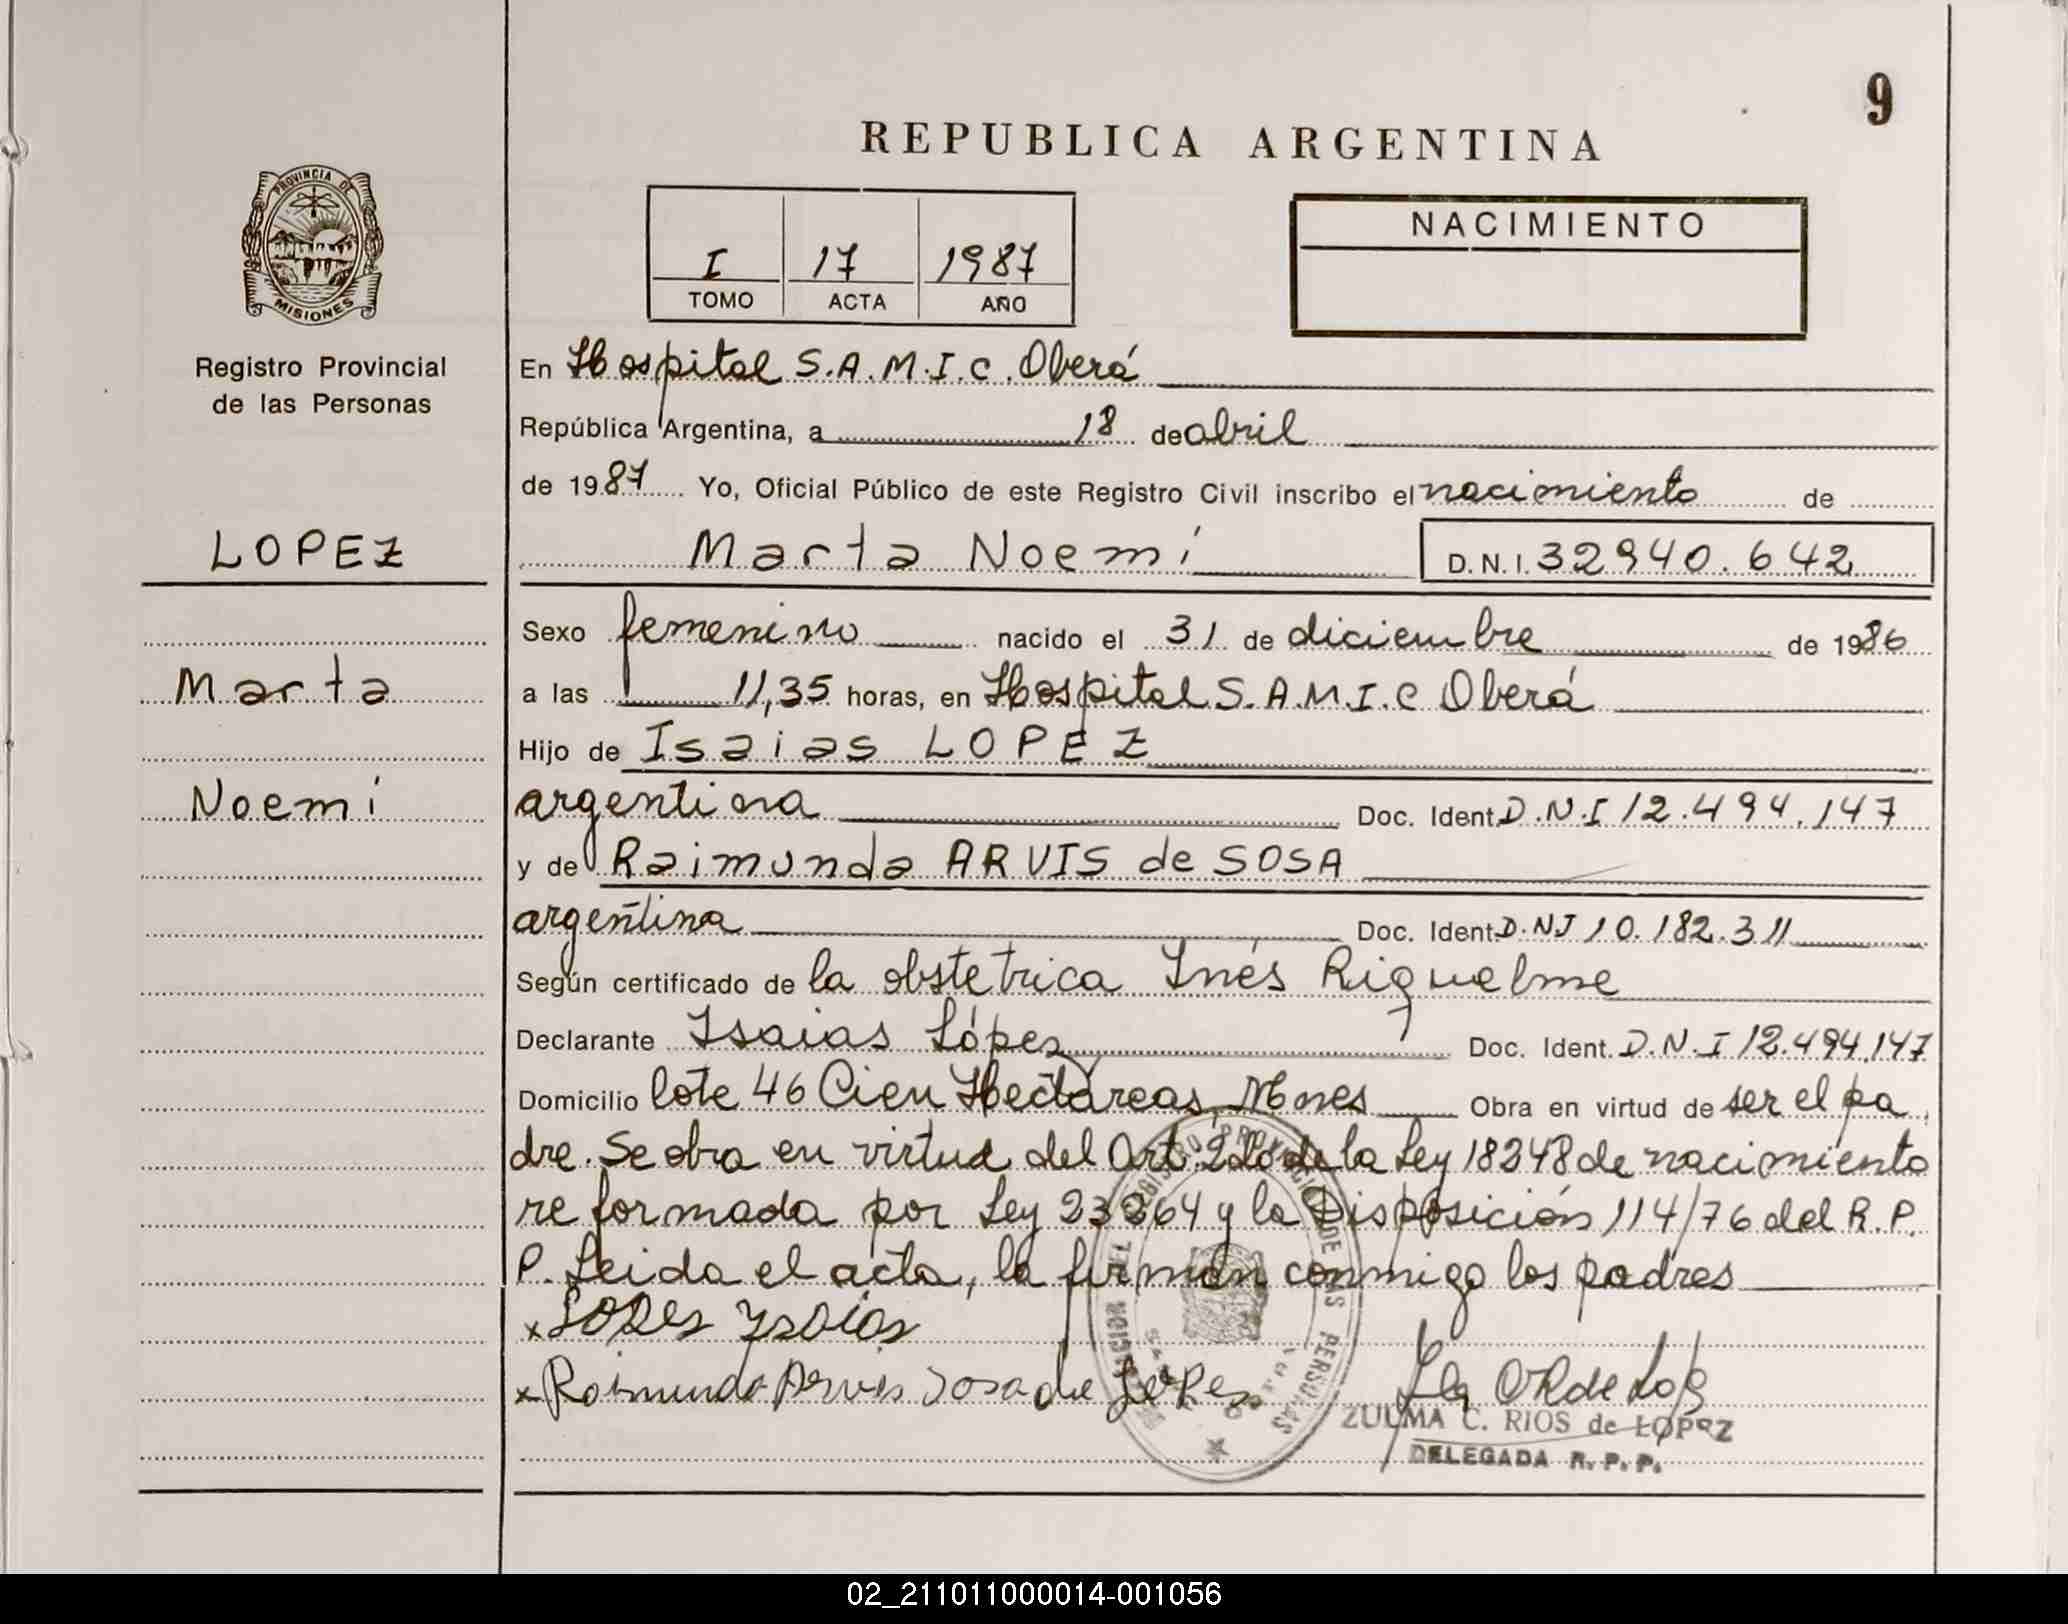 9
REPUBLICA ARGENTINA
PROVINCIA DE
MISIONES
Registro Provincial
de las Personas
I 17 1987
TOMO ACTA AÑO
NACIMIENTO
En Hospital S.A.M.I.C. Oberá
República Argentina, a 18 de abril
de 1987 Yo, Oficial Público de este Registro Civil inscribo el nacimiento de
LOPEZ
Marta Noemí D.N.I. 32940.642
Sexo femenino nacido el 31 de diciembre de 1986
Marta
a las 11,35 horas, en Hospital S.A.M.I.C Oberá
Hijo de Isaias LOPEZ
Noemí
argentina Doc. Ident. D.N.I 12.494.147
y de Raimunda ARVIS de SOSA
argentina Doc. Ident. D.NI 10.182.311
Según certificado de la obstetrica Inés Riquelme
Declarante Isaias López Doc. Ident. D.N.I 12.494.147
Domicilio lote 46 Cien Hectáreas Mnes Obra en virtud de ser el pa
dre. Se obra en virtud del Art. 2do de la Ley 18248 de nacimiento
reformada por Ley 23264 y la Disposición 114/76 del R.P.
P. Leida el acta, la firman conmigo los padres
x Lopes Ysaias
x Raimunda Arvis Sosa de Lopes
REGISTRO PROVINCIAL DE LAS PERSONAS
ZULMA C. RIOS de LOPEZ
DELEGADA R. P. P.
02_211011000014-001056